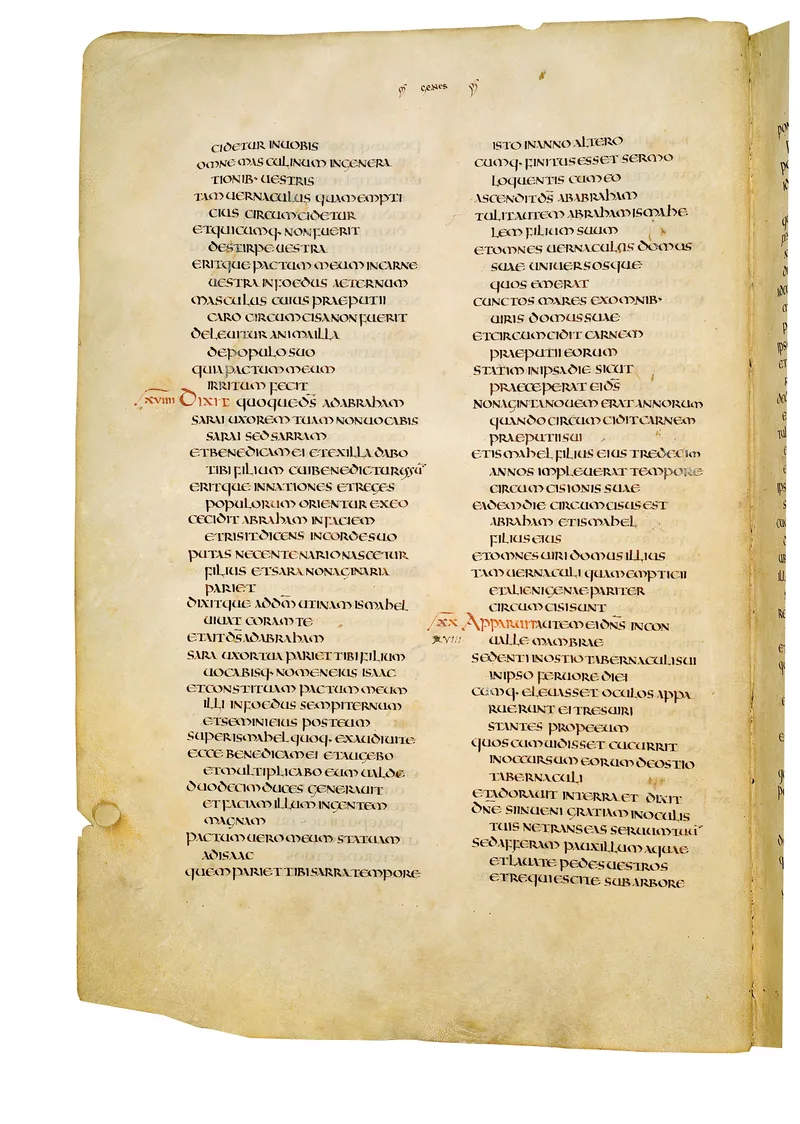 GENES
CIDETUR INUOBIS
OMNE MASCULINUM INGENERA
TIONIB· UESTRIS
TAM UERNACULUS QUAM EMPTI
CIUS CIRCUMCIDETUR
ETQUICUMQ· NON FUERIT
DESTIRPE UESTRA
ERITQUE PACTUM MEUM INCARNE
UESTRA INFOEDUS AETERNUM
MASCULUS CUIUS PRAEPUTII
CARO CIRCUMCISA NON FUERIT
DELEUITUR ANIMA ILLA
DEPOPULO SUO
QUIA PACTUM MEUM
IRRITUM FECIT
XVIIII DIXIT QUOQUE D̄S ADABRAHAM
SARAI UXOREM TUAM NON UOCABIS
SARAI SED SARRAM
ETBENEDICAM EI ETEXILLA DABO
TIBI FILIUM CUI BENEDICTURUS SU̅
ERITQUE INNATIONES ETREGES
POPULORUM ORIENTUR EXEO
CECIDIT ABRAHAM INFACIEM
ETRISIT DICENS INCORDE SUO
PUTAS NE CENTENARIO NASCETUR
FILIUS ETSARA NONAGINARIA
PARIET
DIXITQUE ADD̄M UTINAM ISMAHEL
UIUAT CORAM TE
ETAIT D̄S ADABRAHAM
SARA UXOR TUA PARIET TIBI FILIUM
UOCABISQ· NOMEN EIUS ISAAC
ETCONSTITUAM PACTUM MEUM
ILLI INFOEDUS SEMPITERNUM
ETSEMINI EIUS POST EUM
SUPER ISMAHEL QUOQ· EXAUDIUI TE
ECCE BENEDICAM EI ETAUGEBO
ETMULTIPLICABO EUM UALDE
DUODECIM DUCES GENERAUIT
ETFACIAM ILLUM INGENTEM
MAGNAM
PACTUM UERO MEUM STATUAM
ADISAAC
QUEM PARIET TIBI SARRA TEMPORE
ISTO INANNO ALTERO
CUMQ· FINITUS ESSET SERMO
LOQUENTIS CUM EO
ASCENDIT D̄S ABABRAHAM
TULIT AUTEM ABRAHAM ISMAHE
LEM FILIUM SUUM
ETOMNES UERNACULUS DOMUS
SUAE UNIUERSOSQUE
QUOS EMERAT
CUNCTOS MARES EXOMNIB·
UIRIS DOMUS SUAE
ETCIRCUMCIDIT CARNEM
PRAEPUTII EORUM
STATIM INIPSA DIE SICUT
PRAECEPERAT EI D̄S
NONAGINTA NOUEM ERAT ANNORUM
QUANDO CIRCUMCIDIT CARNEM
PRAEPUTII SUI
ETISMAHEL FILIUS EIUS TREDECIM
ANNOS IMPLEUERAT TEMPORE
CIRCUMCISIONIS SUAE
EADEM DIE CIRCUMCISUS EST
ABRAHAM ETISMAHEL
FILIUS EIUS
ETOMNES UIRI DOMUS ILLIUS
TAM UERNACULI QUAM EMPTICII
ETALIENIGENAE PARITER
CIRCUMCISI SUNT
XX APPARUIT AUTEM EI D̄NS INCON
XVIII UALLE MAMBRAE
SEDENTI INOSTIO TABERNACULI SUI
INIPSO FERUORE DIEI
CUMQ· ELEUASSET OCULOS APPA
RUERUNT EI TRES UIRI
STANTES PROPE EUM
QUOS CUM UIDISSET CUCURRIT
INOCCURSUM EORUM DEOSTIO
TABERNACULI
ETADORAUIT INTERRA ET DIXIT
D̄NE SI INUENI GRATIAM INOCULIS
TUIS NE TRANSEAS SERUUM TUU̅
SED AFFERAM PAUXILLUM AQUAE
ETLAUATE PEDES UESTROS
ETREQUIESCITE SUB ARBORE